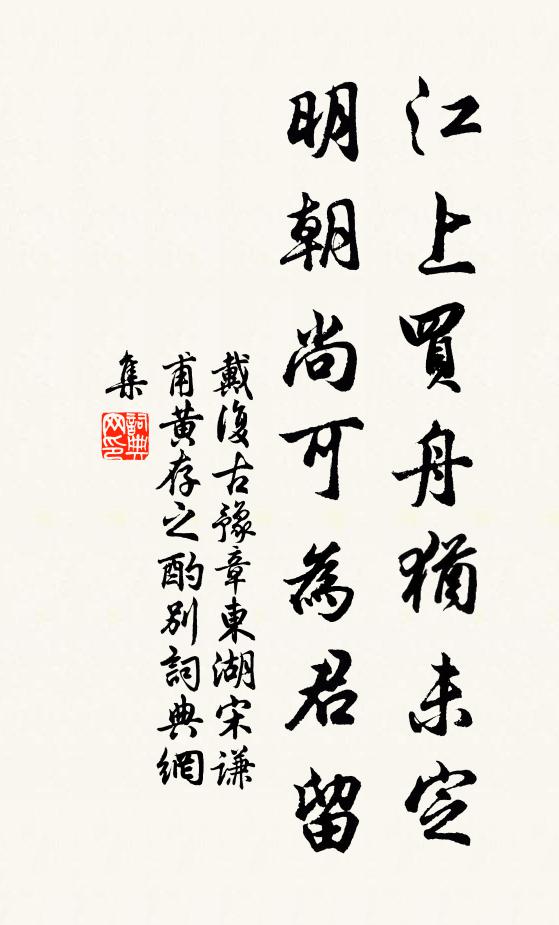 江上買舟猶未定
明朝尚可為君留
戴復古豫章東湖宋謙
甫黃存之酌別詞典網
集
詞典网印